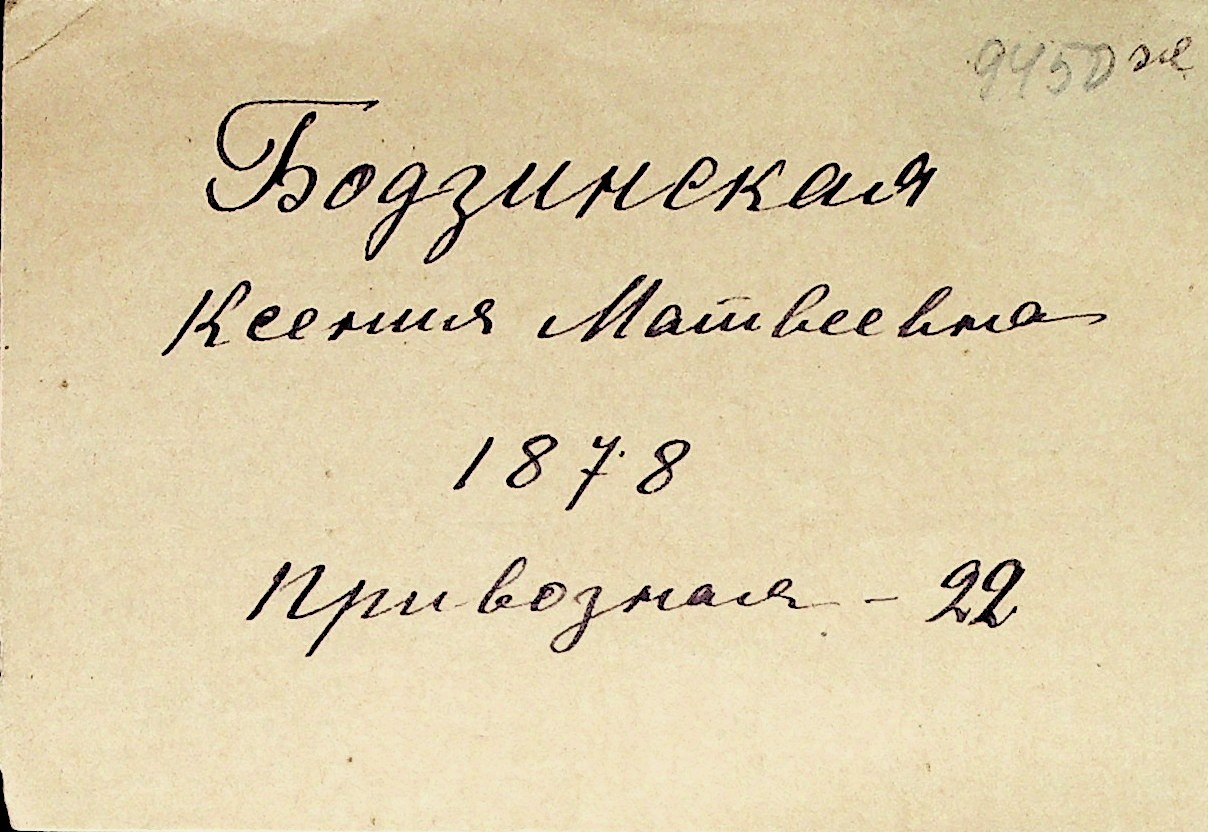 9450 же
Бодзинская
Ксения Матвеевна
1878
Привозная - 22